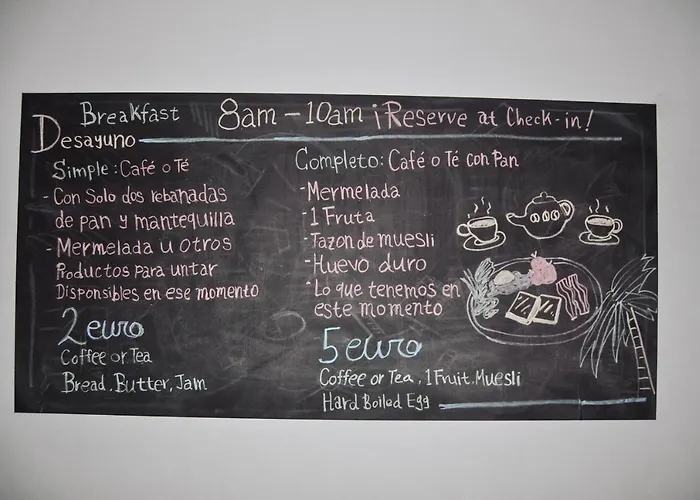 Breakfast 8am - 10am ¡Reserve at Check-in!
Desayuno
Simple: Café o Té
- Con Solo dos rebanadas
de pan y mantequilla
- Mermelada u otros
Productos para untar
Disponibles en ese momento
2 euro
Coffee or Tea
Bread, Butter, Jam
Completo: Café o Té con Pan
- Mermelada
- 1 Fruta
- Tazon de muesli
- Huevo duro
- Lo que tenemos en
este momento
5 euro
Coffee or Tea, 1 Fruit, Muesli
Hard Boiled Egg